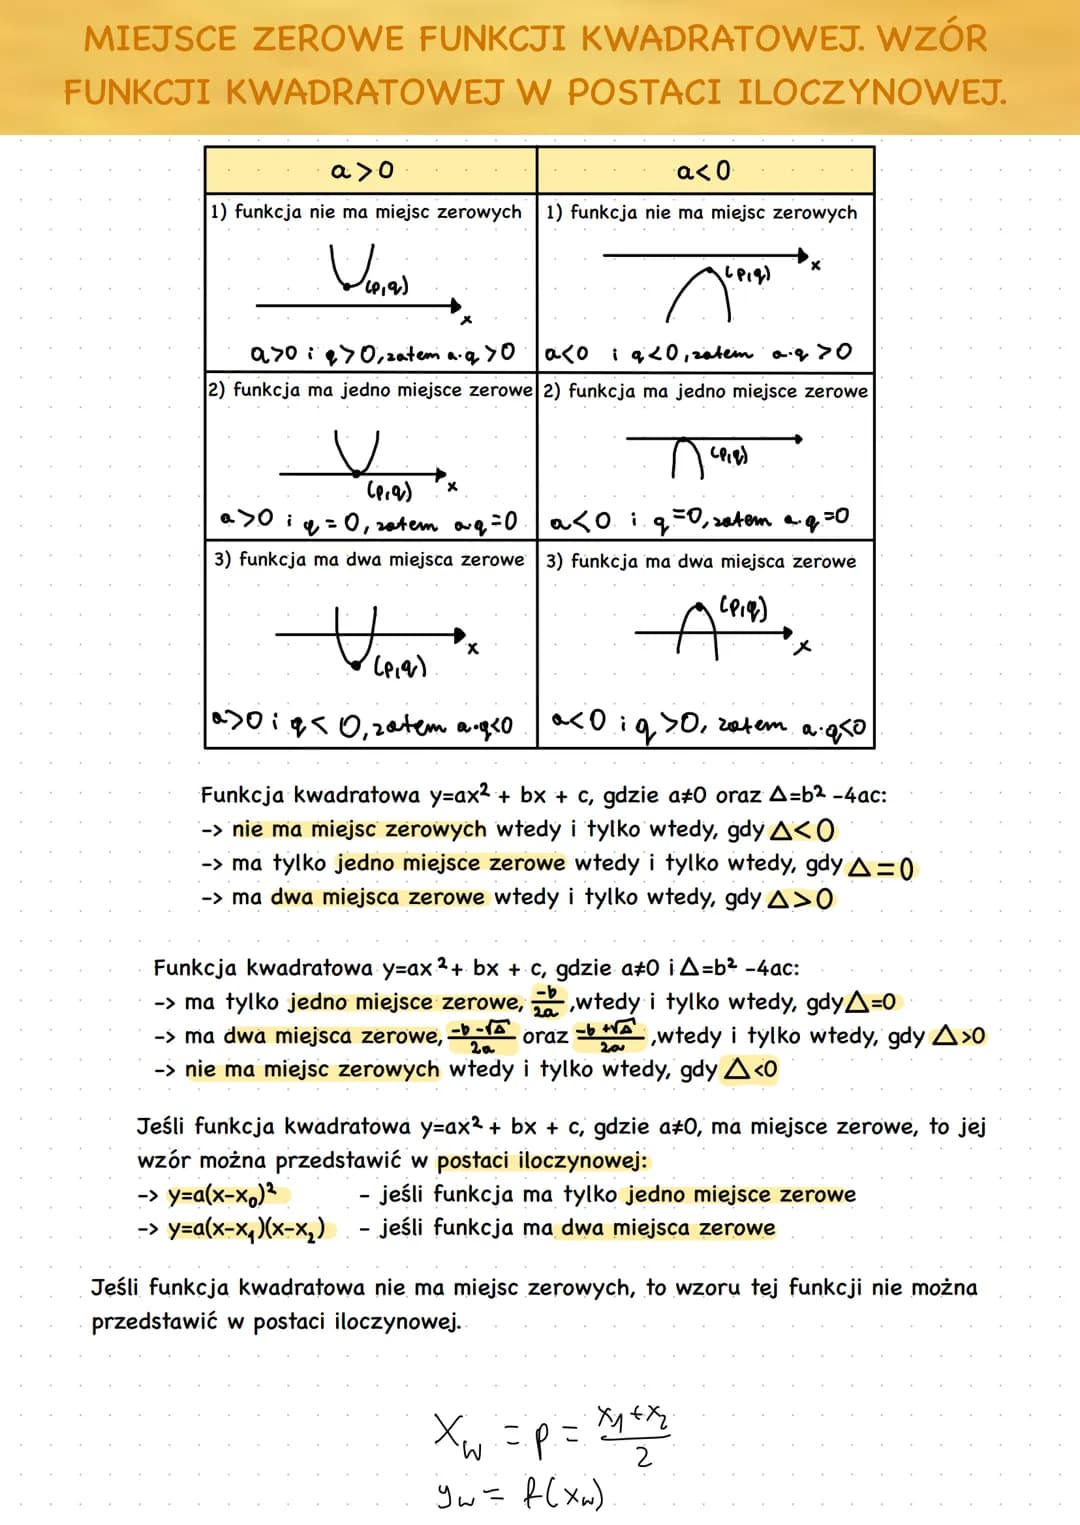 MIEJSCE ZEROWE FUNKCJI KWADRATOWEJ. WZÓR
FUNKCJI KWADRATOWEJ W POSTACI ILOCZYNOWEJ.
a>0
a<0
1) funkcja nie ma miejsc zerowych
(p,q)
x
a>0 i q>0, zatem a·q>0
1) funkcja nie ma miejsc zerowych
(p,q)
x
a<0 i q<0, zatem a·q>0
2) funkcja ma jedno miejsce zerowe
(p,q)
x
a>0 i q=0, zatem a·q=0
2) funkcja ma jedno miejsce zerowe
(p,q)
a<0 i q=0, zatem a·q=0
3) funkcja ma dwa miejsca zerowe
x
(p,q)
a>0 i q<0, zatem a·q<0
3) funkcja ma dwa miejsca zerowe
(p,q)
x
a<0 i q>0, zatem a·q<0
Funkcja kwadratowa y=ax² + bx + c, gdzie a≠0 oraz Δ=b² -4ac:
-> nie ma miejsc zerowych wtedy i tylko wtedy, gdy Δ<0
-> ma tylko jedno miejsce zerowe wtedy i tylko wtedy, gdy Δ=0
-> ma dwa miejsca zerowe wtedy i tylko wtedy, gdy Δ>0
Funkcja kwadratowa y=ax² + bx + c, gdzie a≠0 i Δ=b² -4ac:
-> ma tylko jedno miejsce zerowe, -b/2a ,wtedy i tylko wtedy, gdy Δ=0
-> ma dwa miejsca zerowe, -b-√Δ/2a oraz -b+√Δ/2a ,wtedy i tylko wtedy, gdy Δ>0
-> nie ma miejsc zerowych wtedy i tylko wtedy, gdy Δ<0
Jeśli funkcja kwadratowa y=ax² + bx + c, gdzie a≠0, ma miejsce zerowe, to jej
wzór można przedstawić w postaci iloczynowej:
-> y=a(x-x₀)² - jeśli funkcja ma tylko jedno miejsce zerowe
-> y=a(x-x₁)(x-x₂) - jeśli funkcja ma dwa miejsca zerowe
Jeśli funkcja kwadratowa nie ma miejsc zerowych, to wzoru tej funkcji nie można
przedstawić w postaci iloczynowej.
Xw = p = x₁+x₂/2
yw = f(xw)